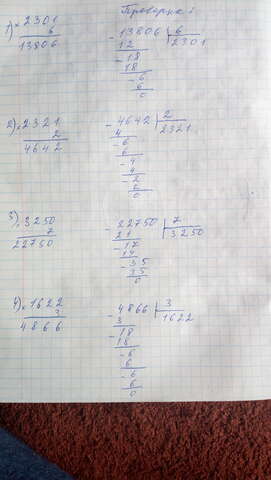 Проверка:
1) × 2301
6
13806
- 13806 | 6
12 2301
- 18
18
- 6
6
0
2) × 2321
2
4642
- 4642 | 2
4 2321
- 6
6
- 4
4
- 2
6
0
3) × 3250
7
22750
- 22750 | 7
21 3250
- 17
14
- 35
35
0
4) × 1622
3
4866
- 4866 | 3
3 1622
- 18
18
- 6
6
- 6
6
0